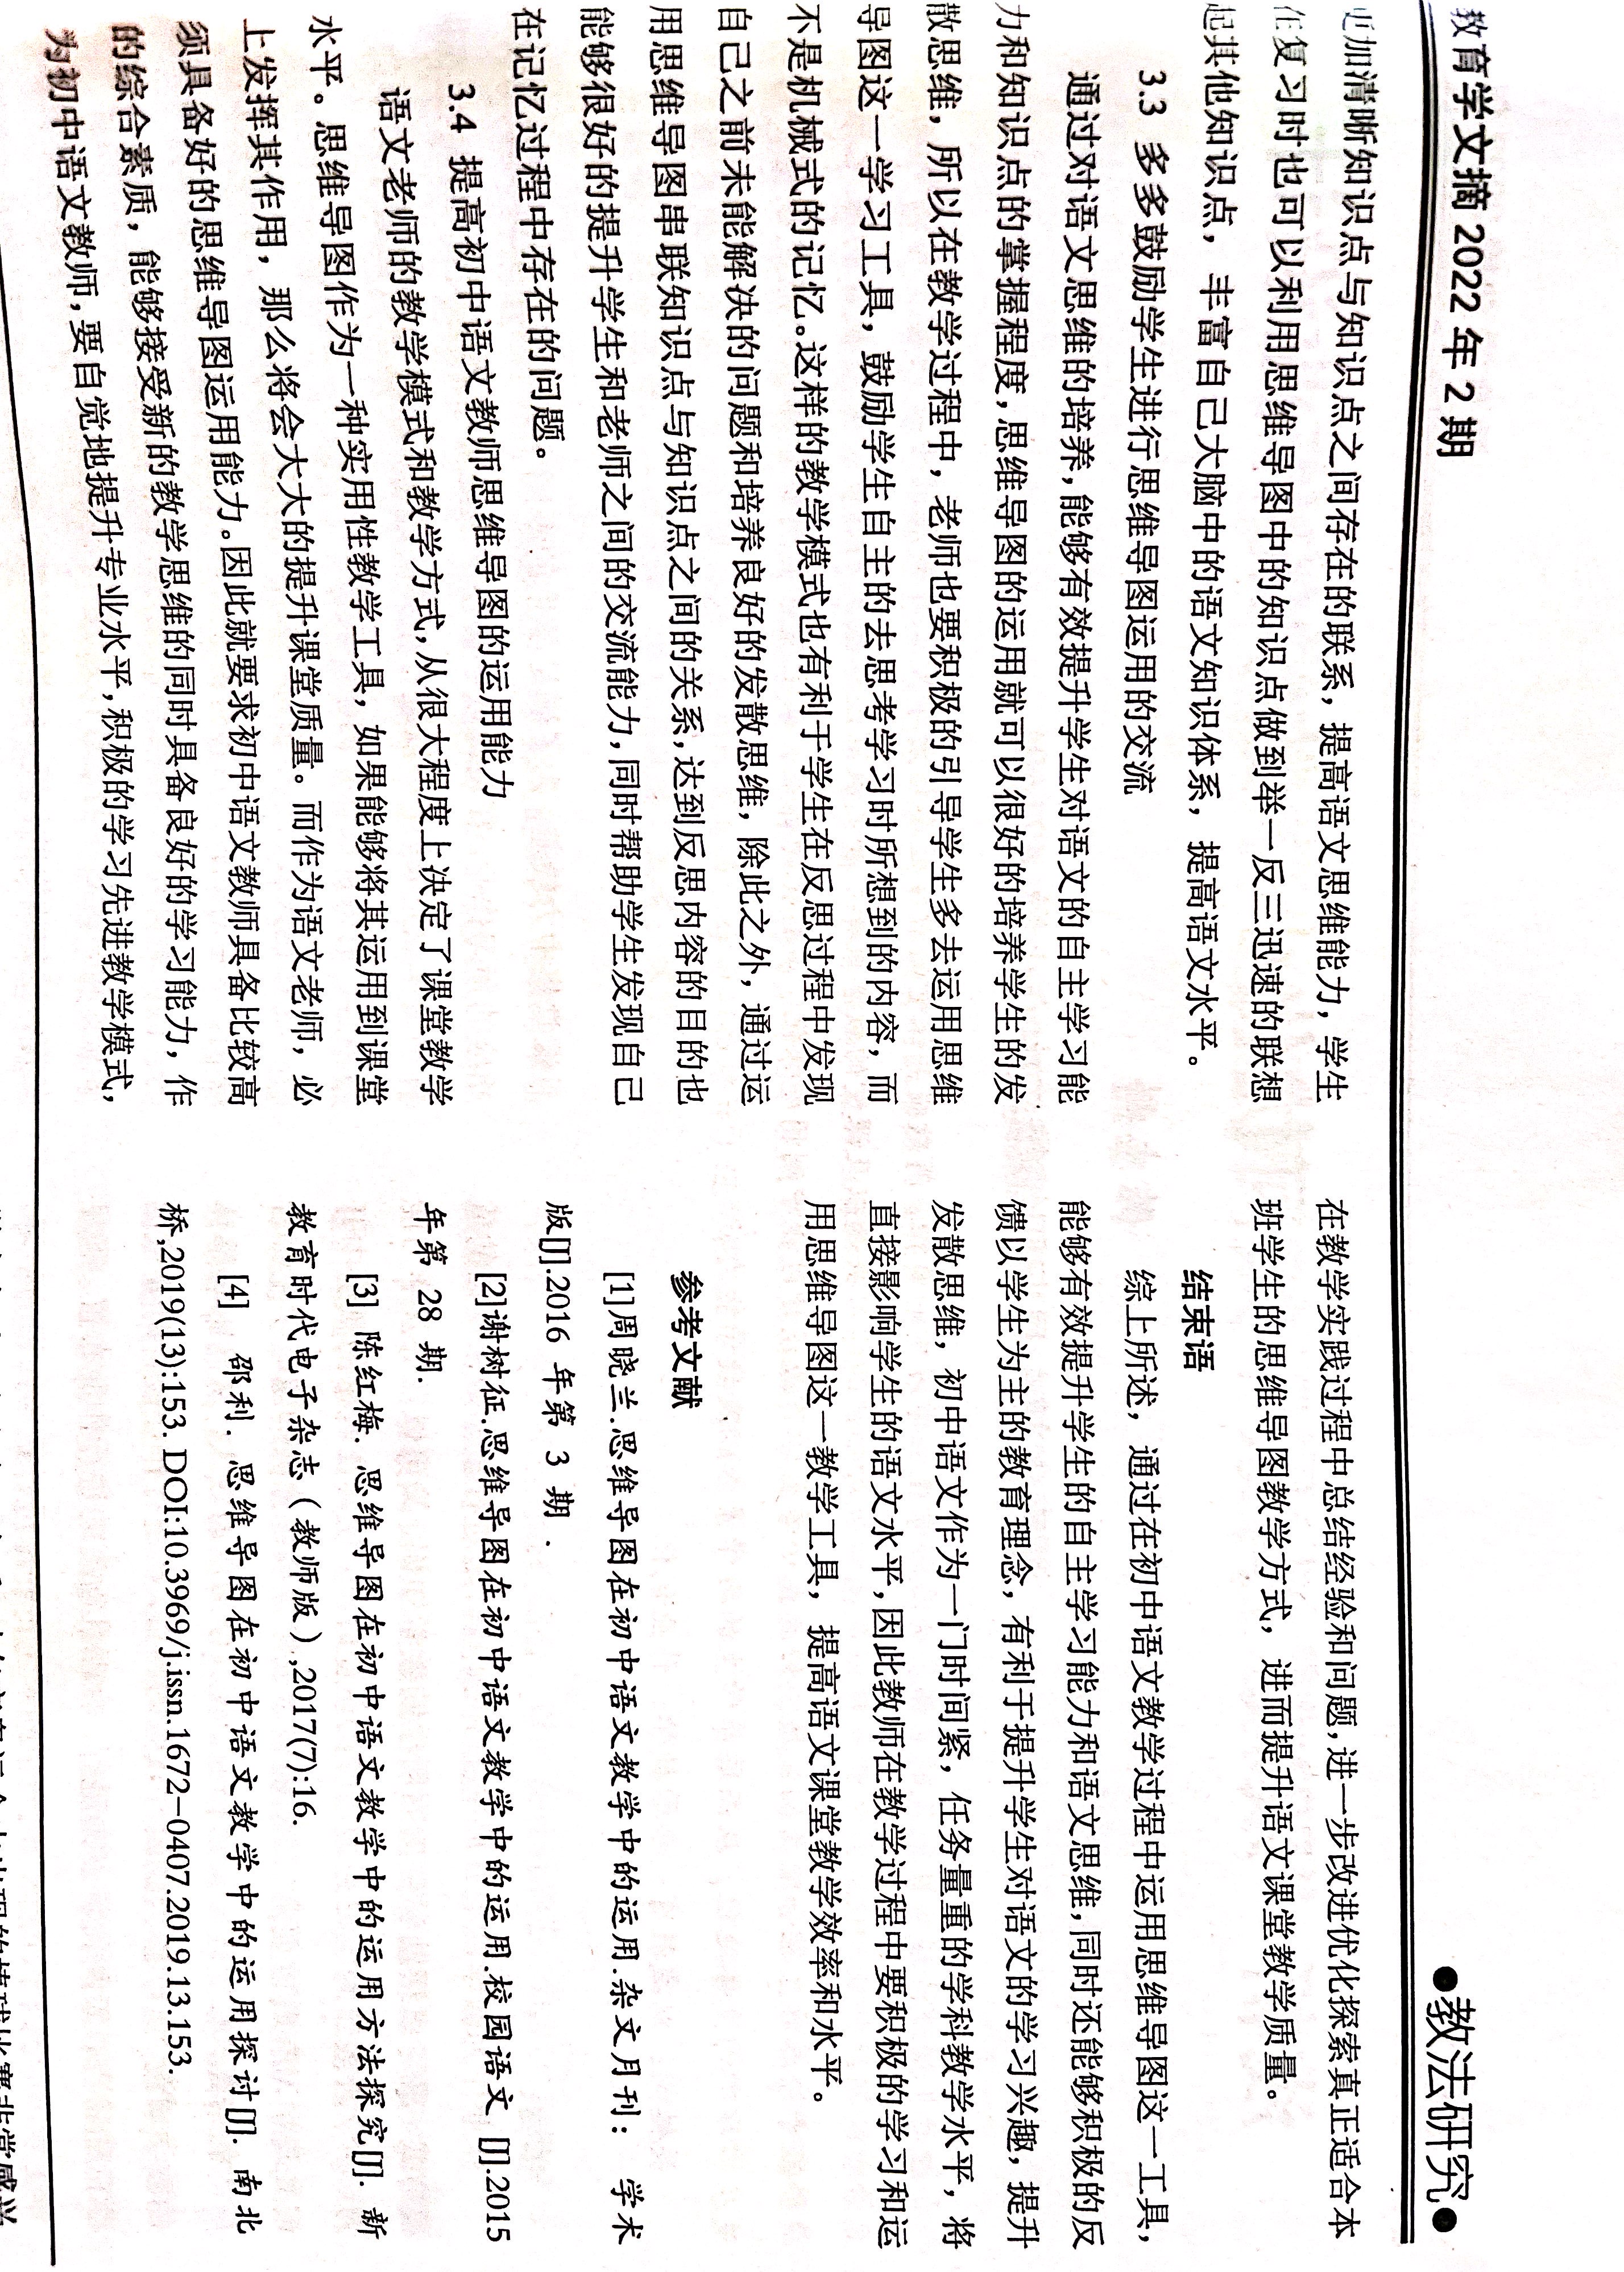 教育学文摘 2022 年 2 期
●教法研究●
更加清晰知识点与知识点之间存在的联系，提高语文思维能力，学生
在复习时也可以利用思维导图中的知识点做到举一反三迅速的联想
起其他知识点，丰富自己大脑中的语文知识体系，提高语文水平。
3.3 多多鼓励学生进行思维导图运用的交流
通过对语文思维的培养，能够有效提升学生对语文的自主学习能
力和知识点的掌握程度，思维导图的运用就可以很好的培养学生的发
散思维，所以在教学过程中，老师也要积极的引导学生多去运用思维
导图这一学习工具，鼓励学生自主的去思考学习时所想到的内容，而
不是机械式的记忆。这样的教学模式也有利于学生在反思过程中发现
自己之前未能解决的问题和培养良好的发散思维，除此之外，通过运
用思维导图串联知识点与知识点之间的关系，达到反思内容的目的也
能够很好的提升学生和老师之间的交流能力，同时帮助学生发现自己
在记忆过程中存在的问题。
3.4 提高初中语文教师思维导图的运用能力
语文老师的教学模式和教学方式，从很大程度上决定了课堂教学
水平。思维导图作为一种实用性教学工具，如果能够将其运用到课堂
上发挥其作用，那么将会大大的提升课堂质量。而作为语文老师，必
须具备好的思维导图运用能力。因此就要求初中语文教师具备比较高
的综合素质，能够接受新的教学思维的同时具备良好的学习能力，作
为初中语文教师，要自觉地提升专业水平，积极的学习先进教学模式，
在教学实践过程中总结经验和问题，进一步改进优化探索真正适合本
班学生的思维导图教学方式，进而提升语文课堂教学质量。
结束语
综上所述，通过在初中语文教学过程中运用思维导图这一工具，
能够有效提升学生的自主学习能力和语文思维，同时还能够积极的反
馈以学生为主的教育理念，有利于提升学生对语文的学习兴趣，提升
发散思维，初中语文作为一门时间紧，任务量重的学科教学水平，将
直接影响学生的语文水平，因此教师在教学过程中要积极的学习和运
用思维导图这一教学工具，提高语文课堂教学效率和水平。
参考文献
[1]周晓兰.思维导图在初中语文教学中的运用.杂文月刊： 学术
版[J].2016 年第 3 期 .
[2]谢树征.思维导图在初中语文教学中的运用.校园语文 [J].2015
年第 28 期.
[3] 陈红梅. 思维导图在初中语文教学中的运用方法探究[J]. 新
教育时代电子杂志（教师版）,2017(7):16.
[4] 邵利. 思维导图在初中语文教学中的运用探讨[J]. 南北
桥,2019(13):153. DOI:10.3969/j.issn.1672-0407.2019.13.153.